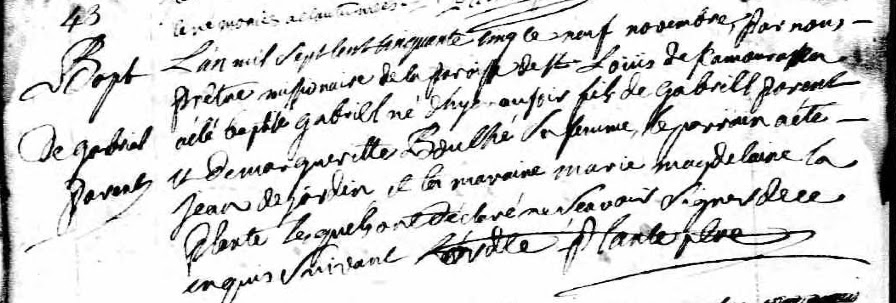 43
Bapt
De gabriel
parent
L'an mil sept cent cinquante cinq le neuf novembre, par nous
prêtre missionaire de la paroisse de st Louis de Kamouraska
a été baptisé gabriel né d'hyer au soir fils de gabriell parent
et de margueritte Boulhé sa femme, le parrain a été
jean de jardin et la maraine marie magdelaine la
plante lesquels ont déclaré ne sçavoir signer de ce
enquis suivant l'ord. plante ptre